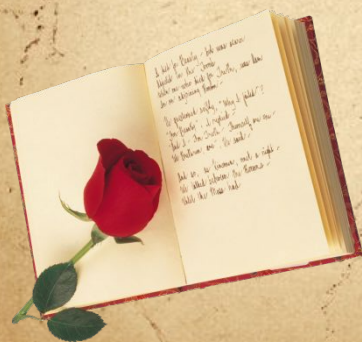 I died for Beauty - but was scarce
Adjusted in the Tomb
When one who died for Truth, was lain
In an adjoining Room -
He questioned softly, "Why I failed"?
"For Beauty", I replied -
"And I - for Truth - Themself are one -
We Brethren are" He said -
And so, as Kinsmen, met a night -
We talked between the Rooms -
Until the Moss had